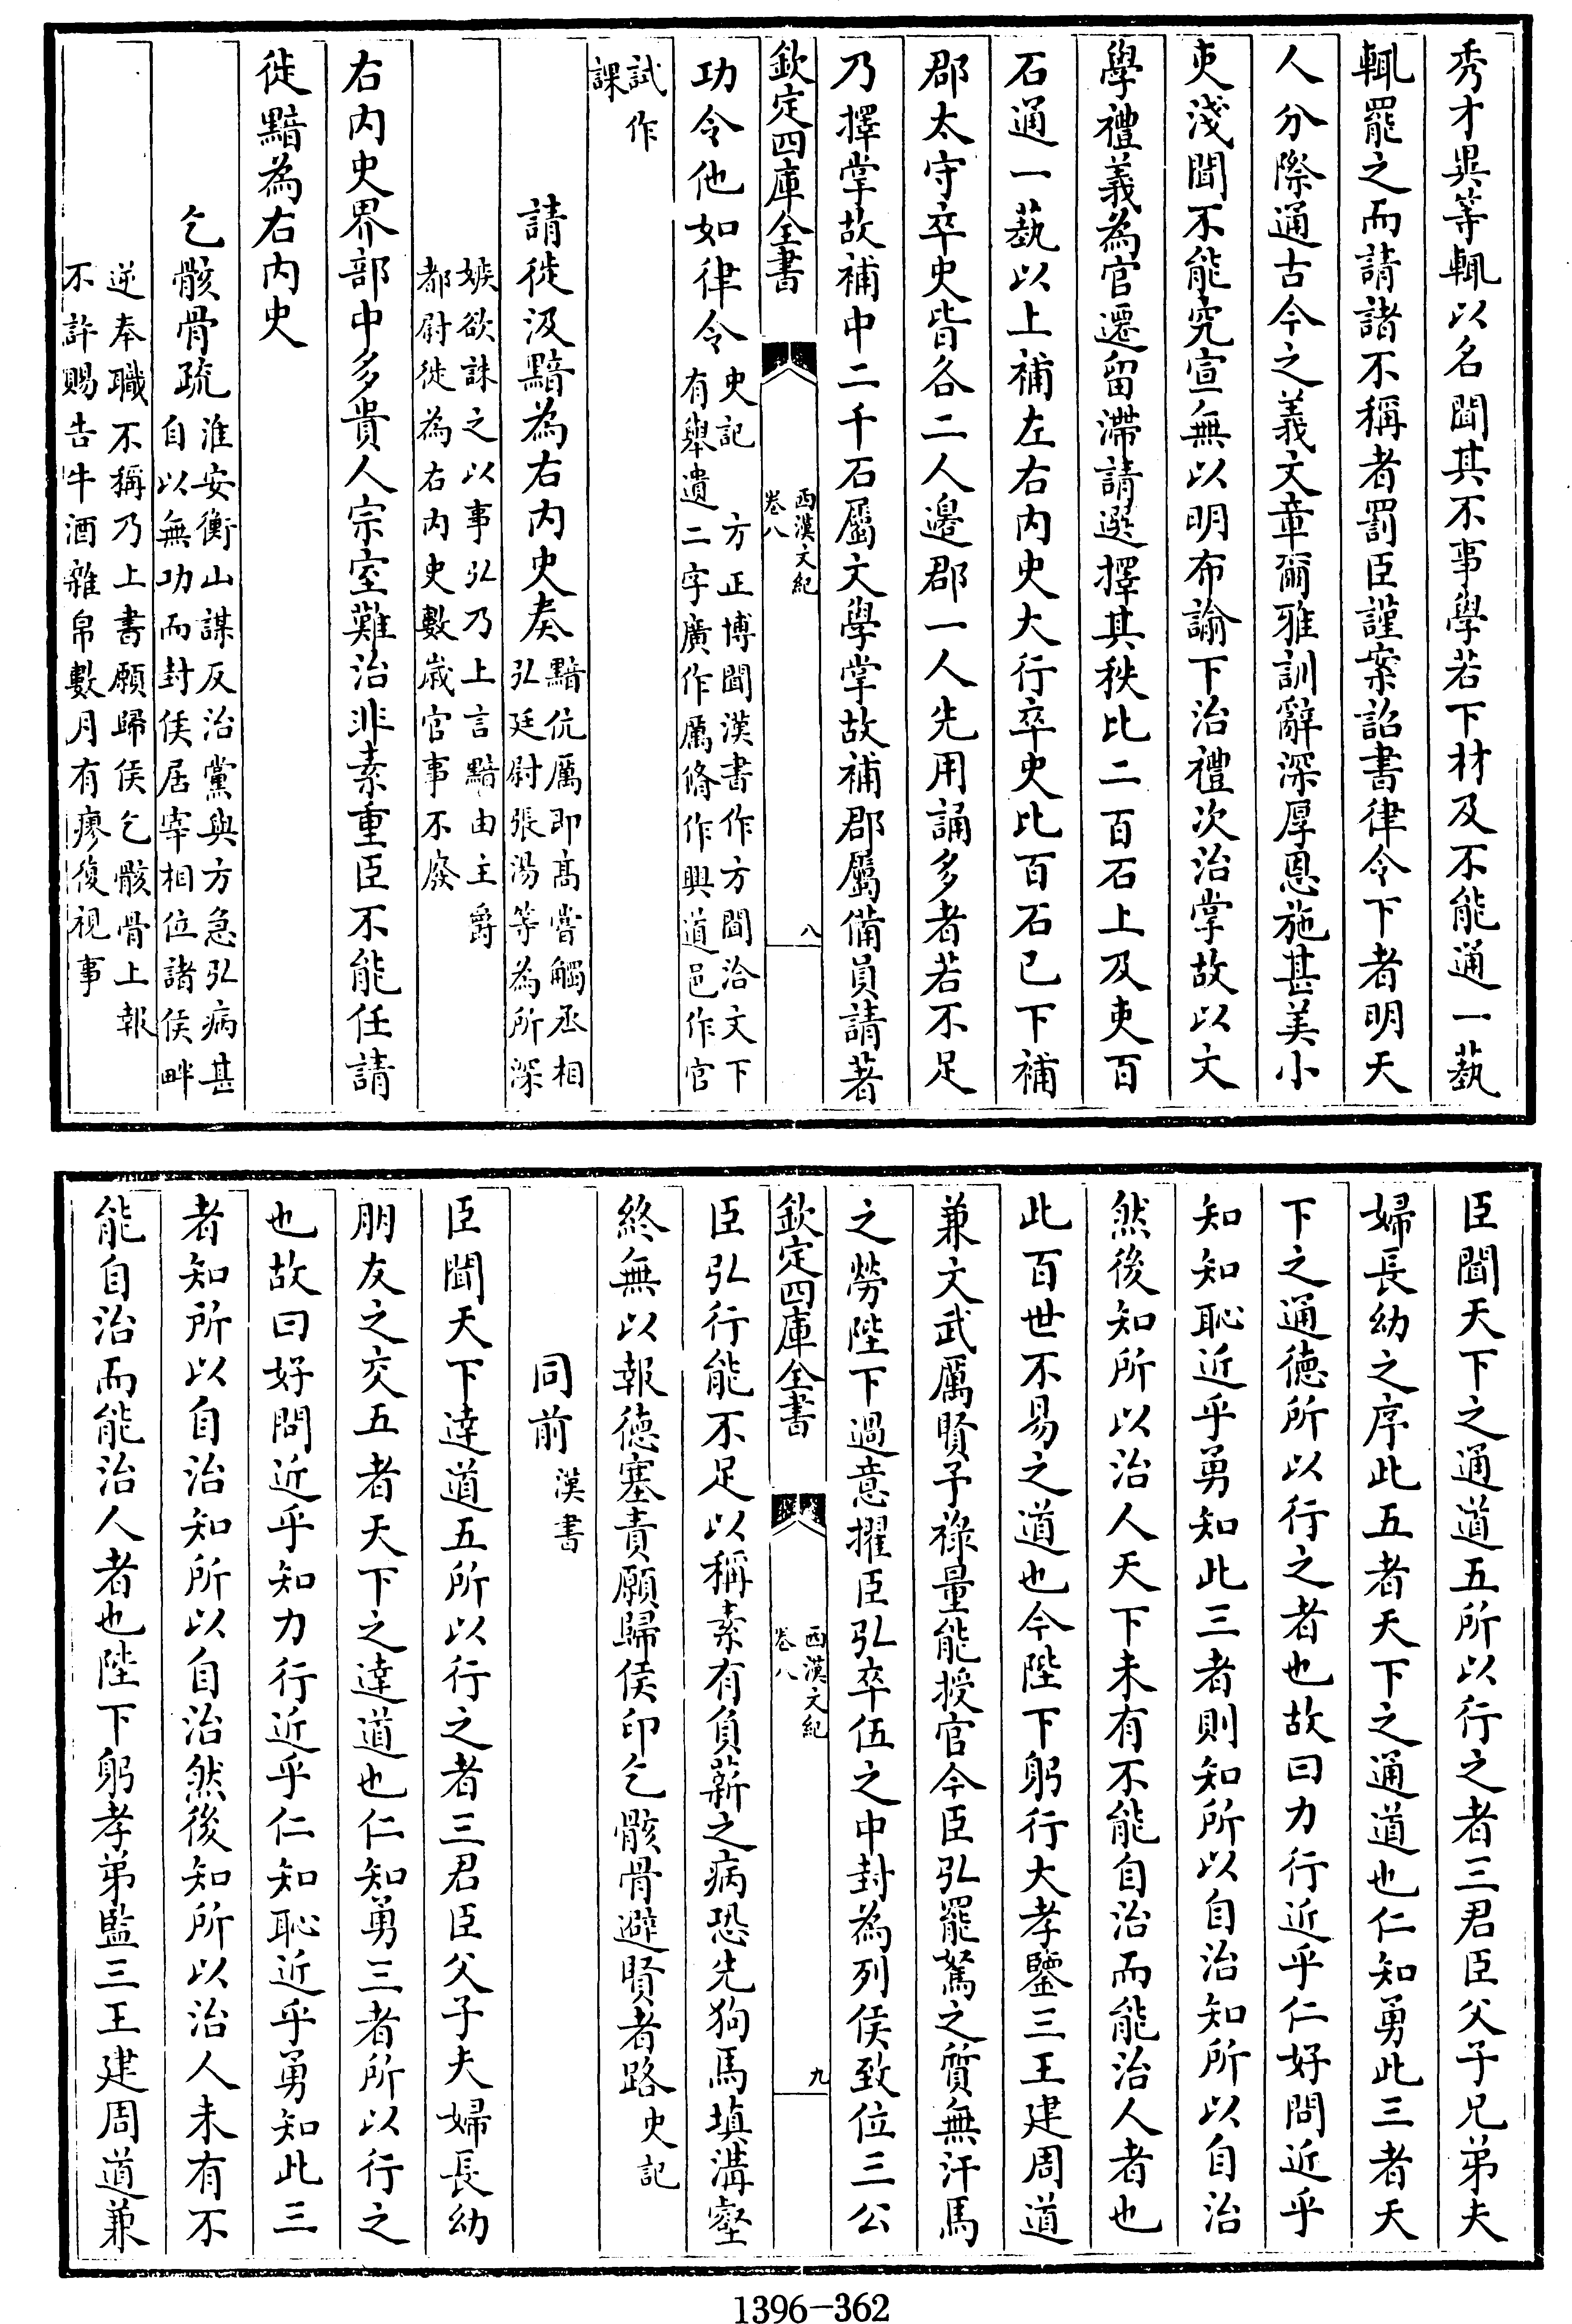 秀才異等輒以名聞其不事學若下材及不能通一藝
輒罷之而請諸不稱者罰臣謹案詔書律令下者明天
人分際通古今之義文章爾雅訓辭深厚恩施甚美小
吏淺聞不能究宣無以明布諭下治禮次治掌故以文
學禮義為官遷留滯請選擇其秩比二百石上及吏百
石通一藝以上補左右内史大行卒史比百石已下補
郡太守卒史皆各二人邊郡一人先用誦多者若不足
乃擇掌故補中二千石屬文學掌故補郡屬備員請著
欽定四庫全書
西漢文紀
卷八
八
功令他如律令
史記 方正博聞漢書作方聞洽文下
有舉遺二字廣作厲脩作興道邑作官
試作
課
請徙汲黯為右内史奏
黯伉厲即髙嘗觸丞相
弘廷尉張湯等為所深
嫉欲誅之以事弘乃上言黯由主爵
都尉徙為右内史數歲官事不廢
右内史界部中多貴人宗室難治非素重臣不能任請
徙黯為右内史
乞骸骨疏
淮安衡山謀反治黨與方急弘病甚
自以無功而封侯居宰相位諸侯畔
逆奉職不稱乃上書願歸侯乞骸骨上報
不許賜告牛酒雜帛數月有瘳復視事
臣聞天下之通道五所以行之者三君臣父子兄弟夫
婦長幼之序此五者天下之通道也仁知勇此三者天
下之通徳所以行之者也故曰力行近乎仁好問近乎
知知恥近乎勇知此三者則知所以自治知所以自治
然後知所以治人天下未有不能自治而能治人者也
此百世不易之道也今陛下躬行大孝鑒三王建周道
兼文武厲賢予祿量能授官今臣弘罷駑之質無汗馬
之勞陛下過意擢臣弘卒伍之中封為列侯致位三公
欽定四庫全書
西漢文紀
卷八
九
臣弘行能不足以稱素有負薪之病恐先狗馬填溝壑
終無以報徳塞責願歸侯印乞骸骨避賢者路
史記
同前
漢書
臣聞天下達道五所以行之者三君臣父子夫婦長幼
朋友之交五者天下之達道也仁知勇三者所以行之
也故曰好問近乎知力行近乎仁知恥近乎勇知此三
者知所以自治知所以自治然後知所以治人未有不
能自治而能治人者也陛下躬孝弟監三王建周道兼
1396-362